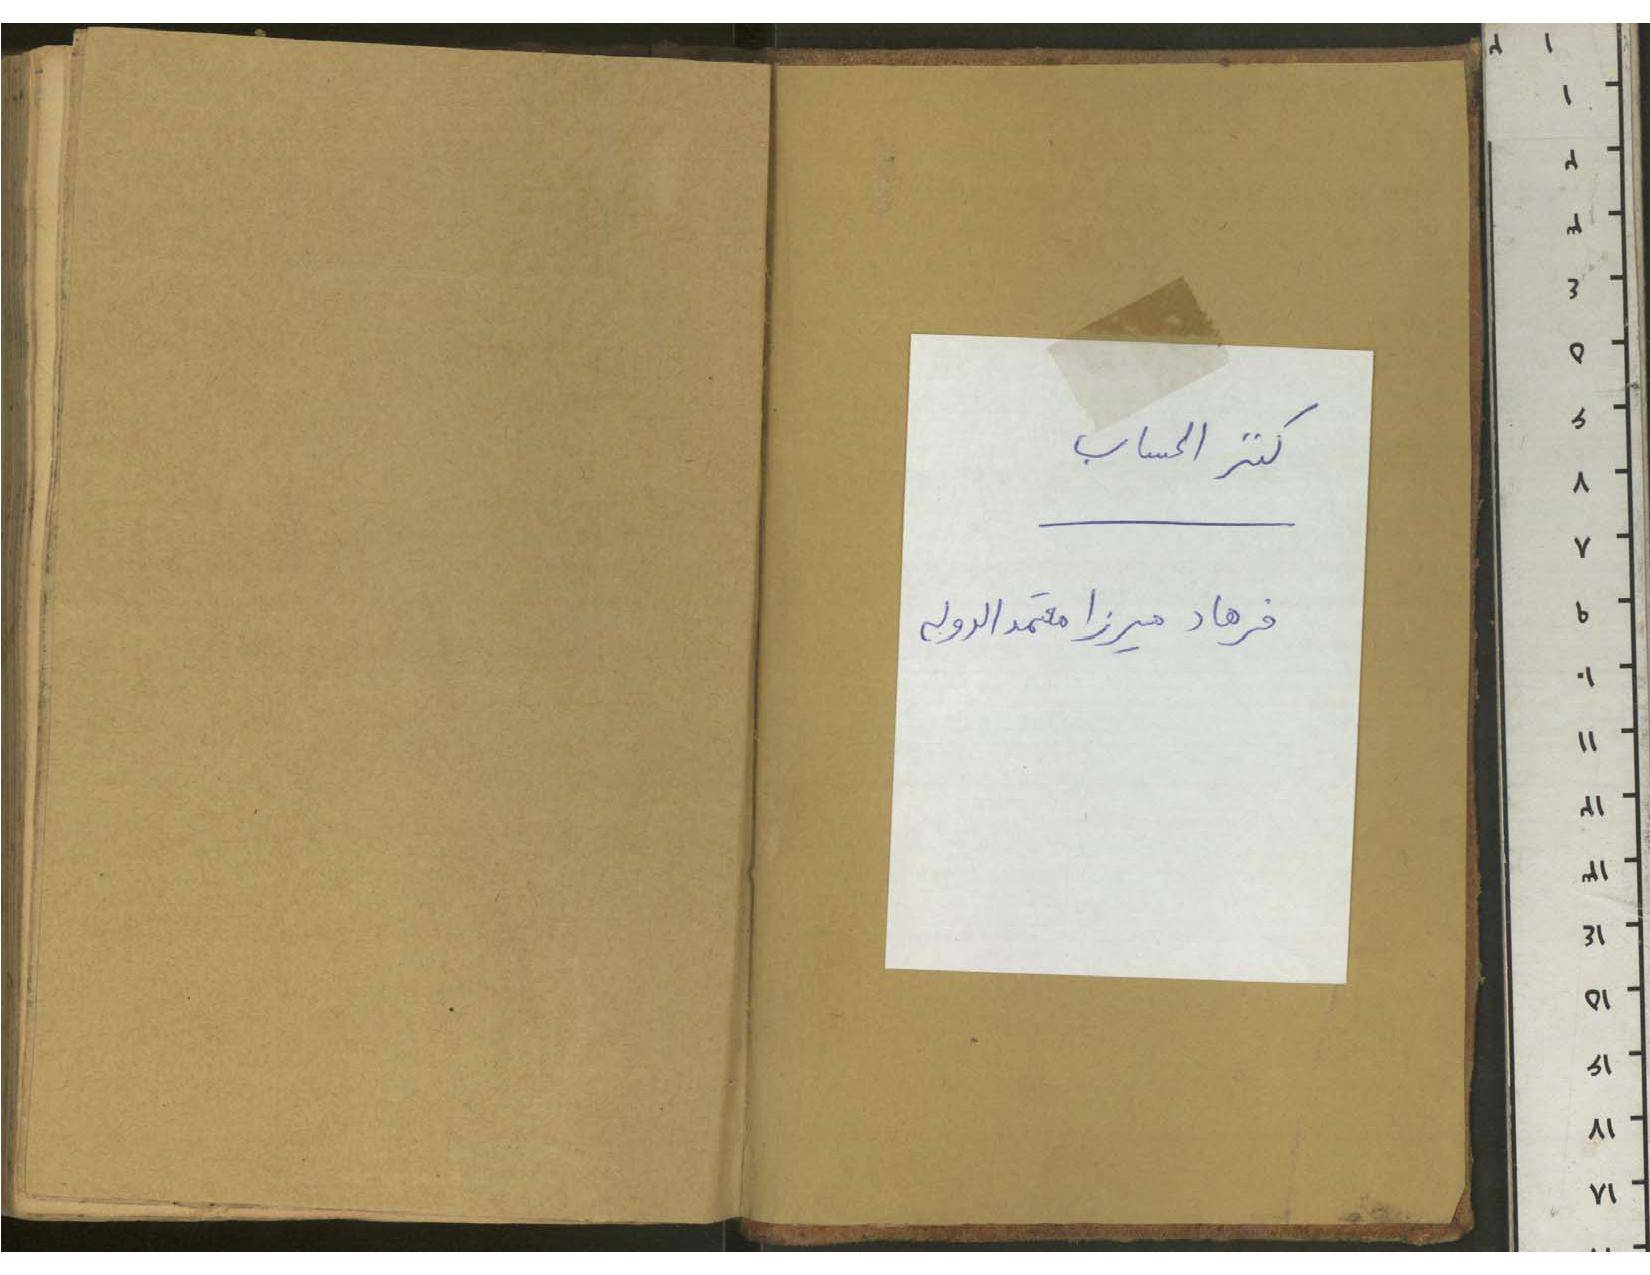 کنز الحساب
فرهاد میرزا معتمدالدوله
۱
۲
۱
۲
۳
۴
۵
۶
۷
۸
۹
۱۰
۱۱
۱۲
۱۳
۱۴
۱۵
۱۶
۱۷
۱۸